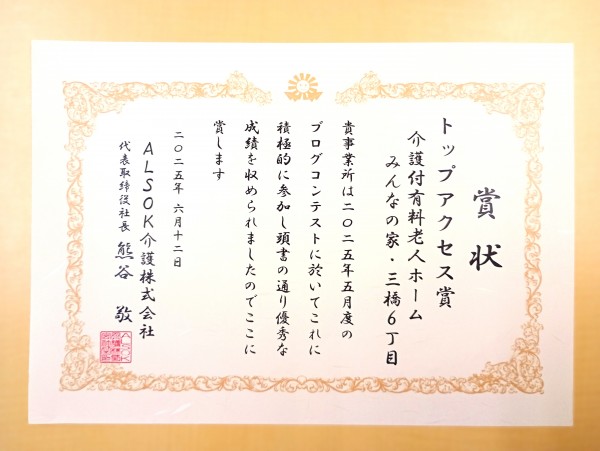 賞状
トップアクセス賞
介護付有料老人ホーム
みんなの家・三橋6丁目
貴事業所は二〇二五年五月度の
ブログコンテストに於いてこれに
積極的に参加し頭書の通り優秀な
成績を収められましたのでここに
賞します
二〇二五年六月十二日
ALSOK介護株式会社
代表取締役社長 熊谷 敬